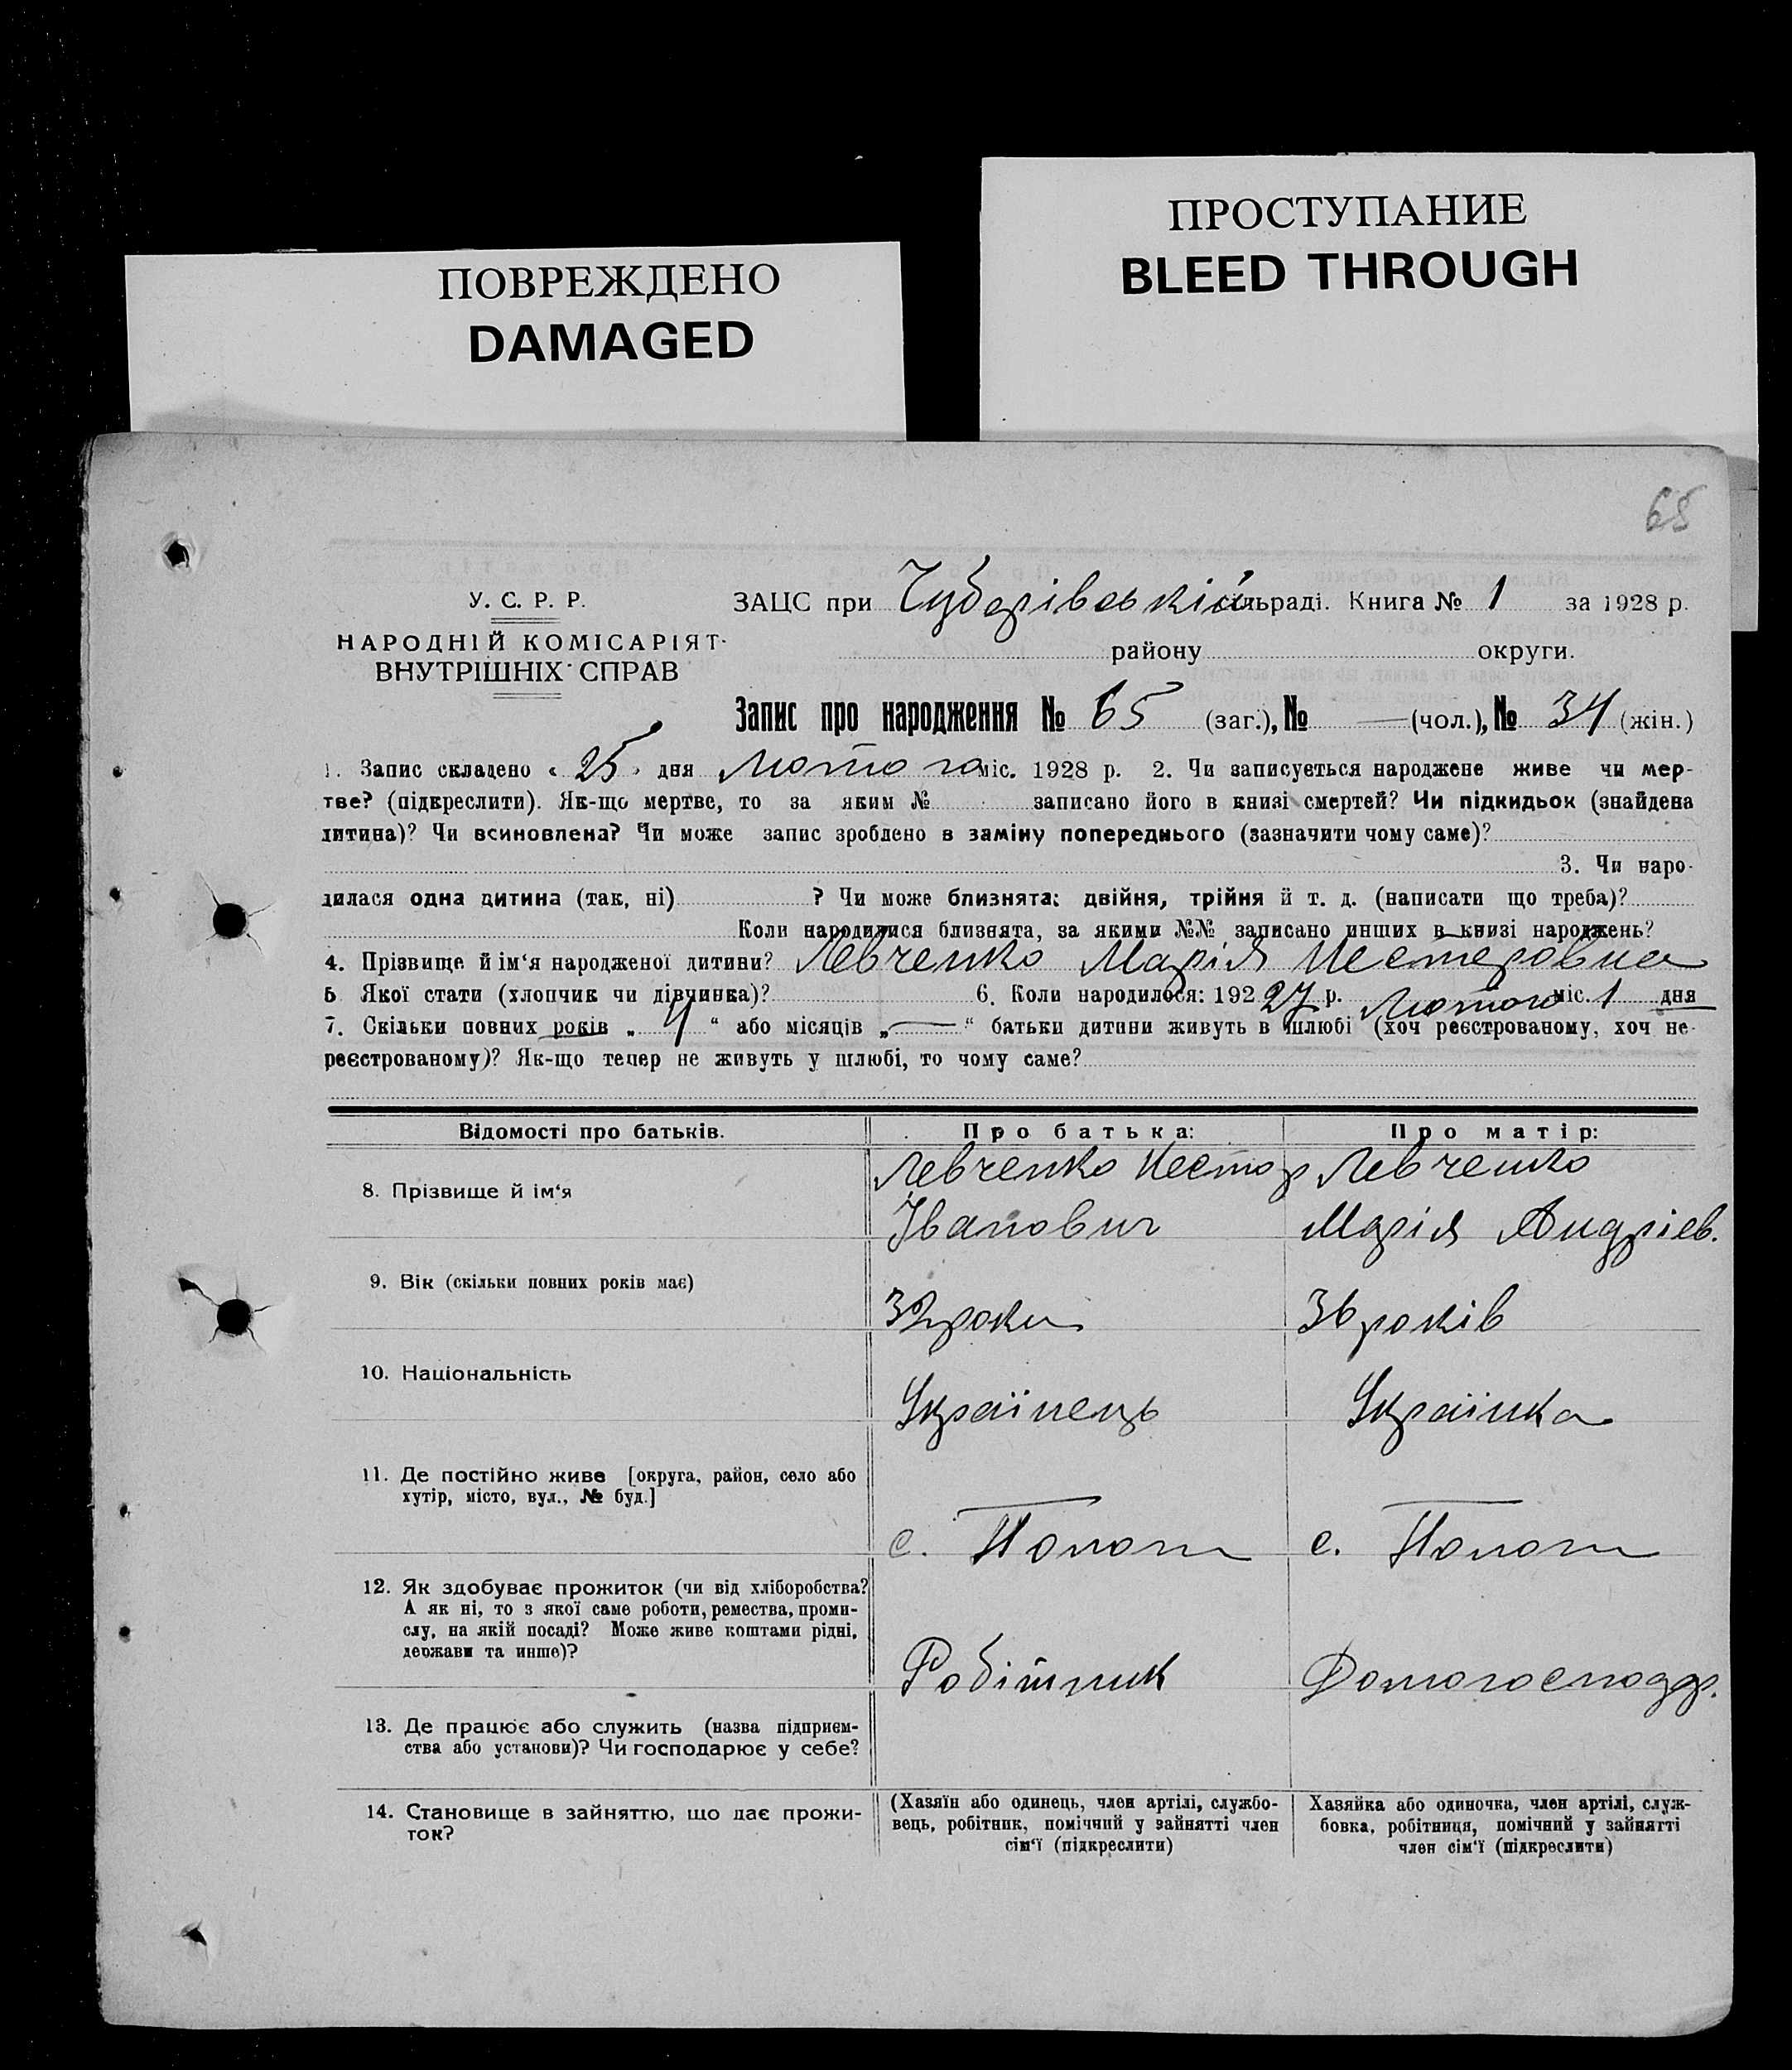 ПОВРЕЖДЕНО
DAMAGED
ПРОСТУПАНИЕ
BLEED THROUGH
65
У. С. Р. Р.
НАРОДНІЙ КОМІСАРІЯТ
ВНУТРІШНІХ СПРАВ
ЗАЦС при Чубарівській сільраді. Книга № 1 за 1928 р.
району округи.
Запис про народження № 65 (заг.), № — (чол.), № 34 (жін.)
1. Запис складено « 25 » дня Лютого міс. 1928 р. 2. Чи записується народжене живе чи мер-
тве? (підкреслити). Як-що мертве, то за яким № записано його в книзі смертей? Чи підкидьок (знайдена
дитина)? Чи всиновлена? Чи може запис зроблено в заміну попереднього (зазначити чому саме)?
3. Чи наро-
дилася одна дитина (так, ні) ? Чи може близнята: двійня, трійня й т. д. (написати що треба)?
Коли народилися близнята, за якими №№ записано инших в книзі народжень?
4. Прізвище й ім‘я народженої дитини? Левченко Марія Нестеровна
5 Якої стати (хлопчик чи дівчинка)? 6. Коли народилося: 192 27 р. Лютого міс. 1 дня
7. Скільки повних років „ 4 “ або місяців „ — “ батьки дитини живуть в шлюбі (хоч реєстрованому, хоч не-
реєстрованому)? Як-що тепер не живуть у шлюбі, то чому саме?
Відомості про батьків. Про батька: Про матір:
8. Прізвище й ім‘я
Левченко Нестор Левченко
Іванович Марія Андріев.
9. Вік (скільки повних років має)
32 роки 36 років
10. Національність
Українець Українка
11. Де постійно живе [округа, район, село або
хутір, місто, вул., № буд.]
с. Пологи с. Пологи
12. Як здобуває прожиток (чи від хліборобства?
А як ні, то з якої саме роботи, ремества, проми-
слу, на якій посаді? Може живе коштами рідні,
держави та инше)?
Робітник Домогосподр.
13. Де працює або служить (назва підприєм-
ства або установи)? Чи господарює у себе?
14. Становище в зайняттю, що дає прожи-
ток?
(Хазяїн або одинець, член артілі, службо-
вець, робітник, помічний у зайнятті член
сім‘ї (підкреслити)
Хазяйка або одиночка, член артілі, служ-
бовка, робітниця, помічний у зайнятті
член сім‘ї (підкреслити)